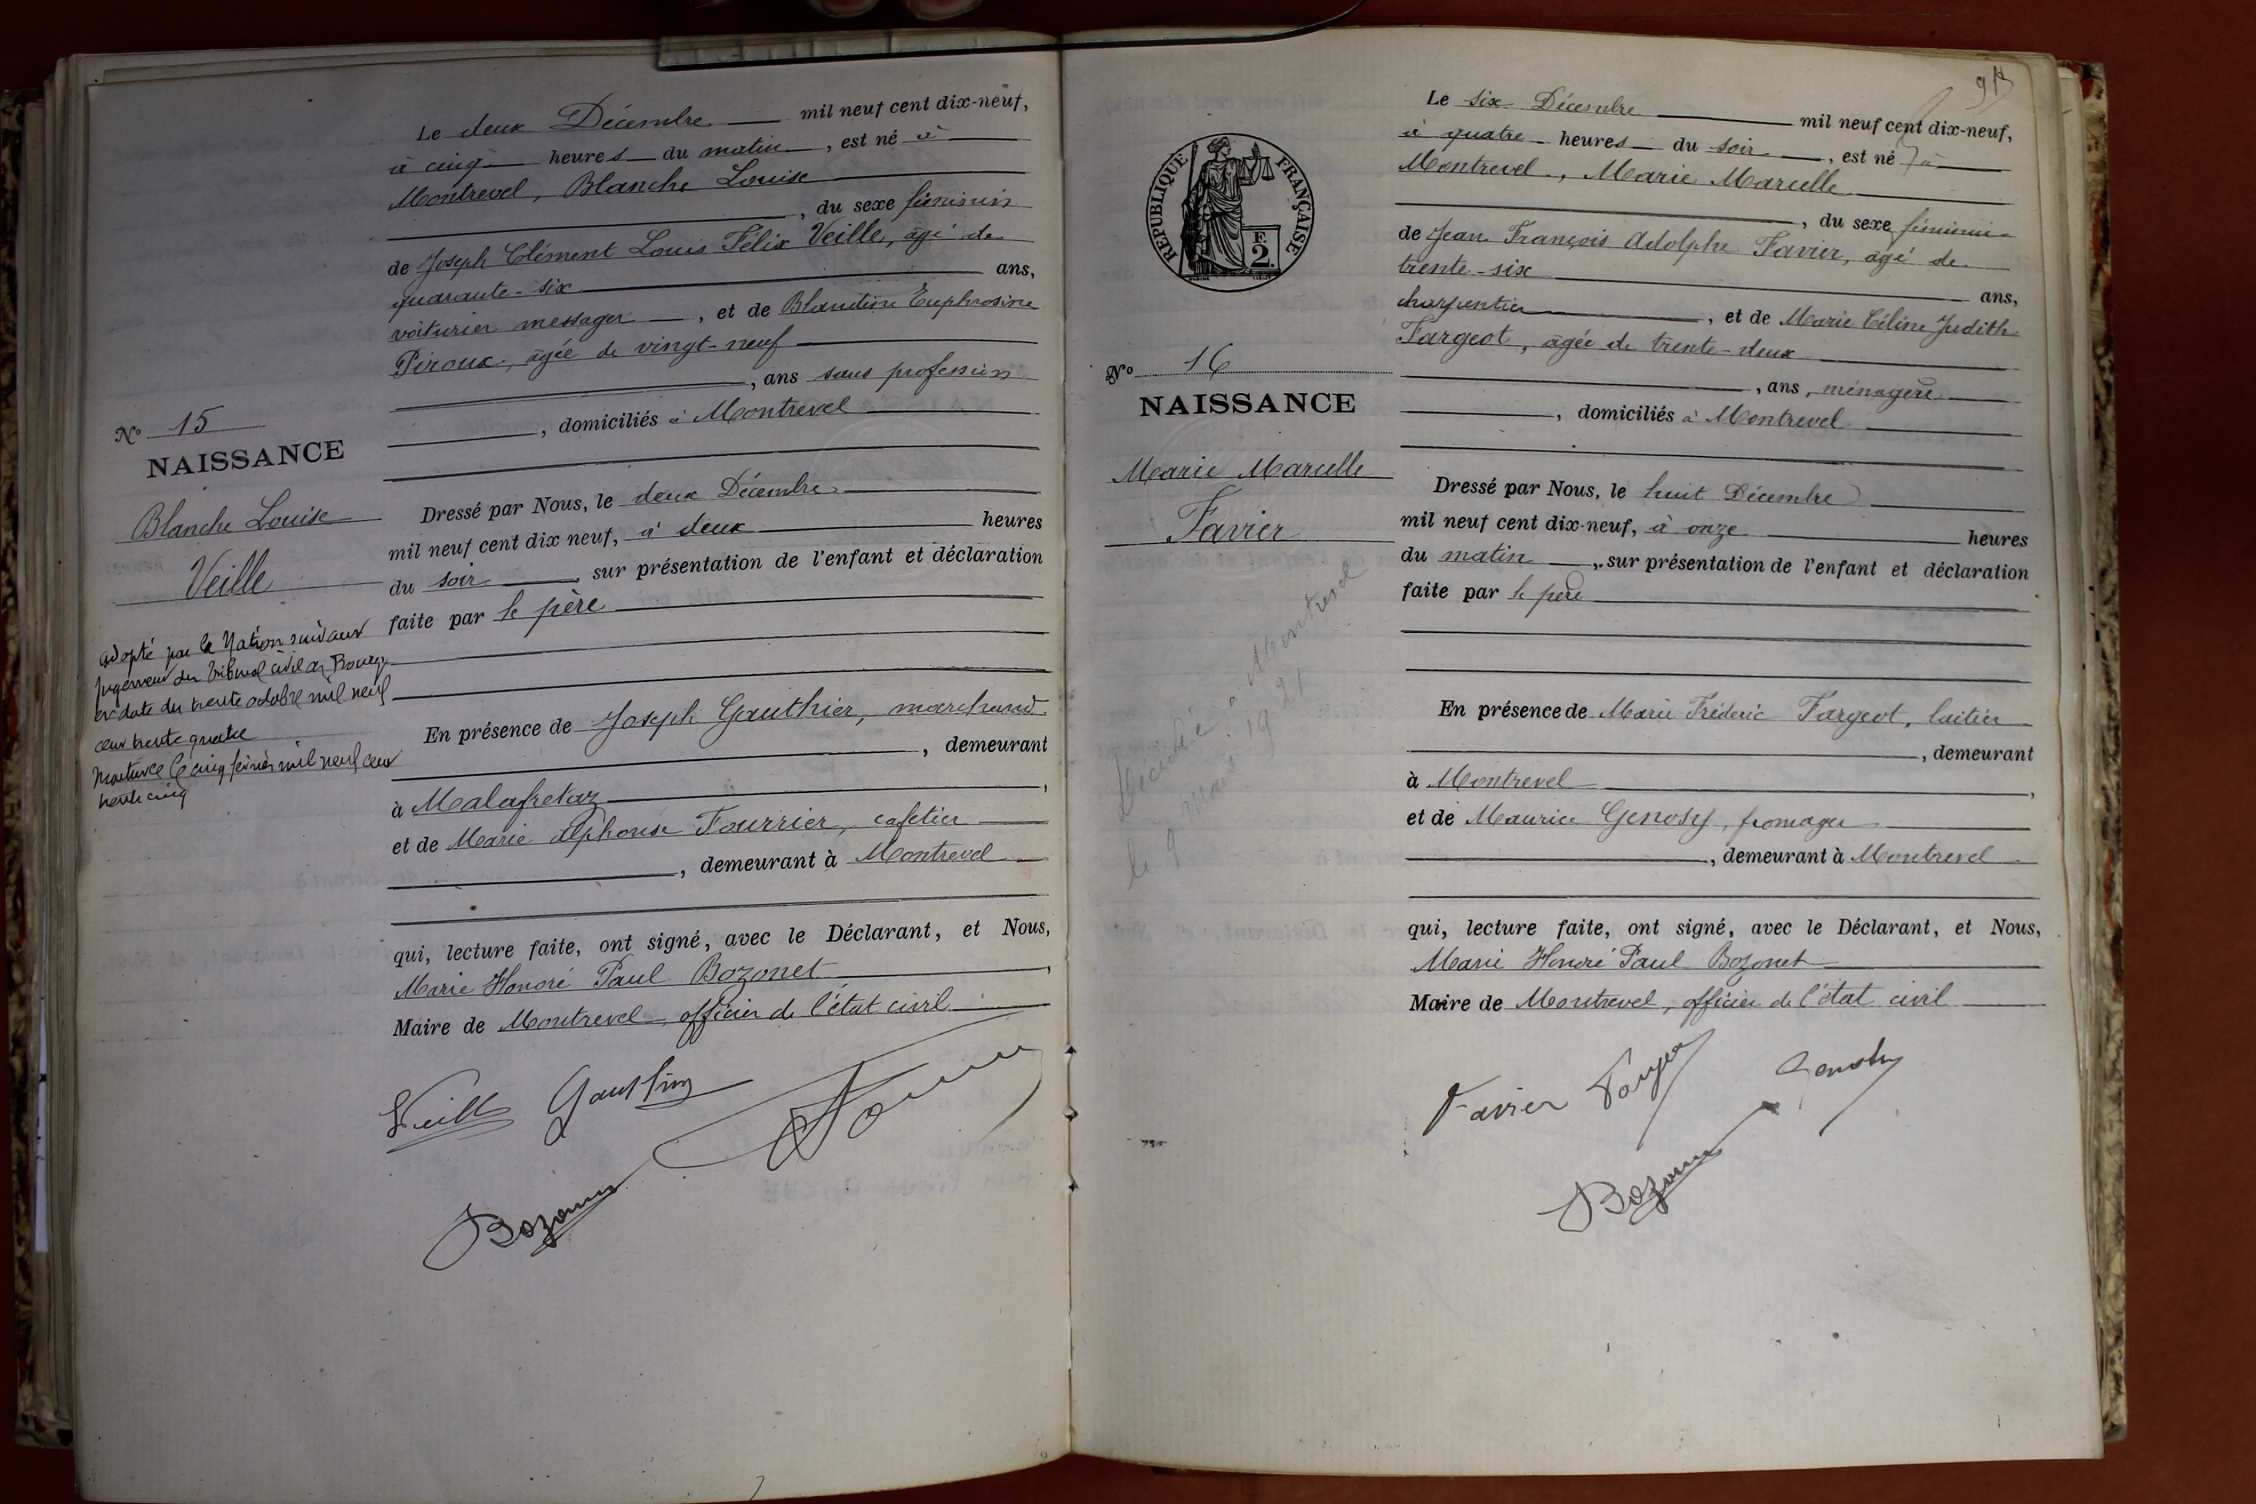 Le deux Décembre mil neuf cent dix-neuf,
à cinq heures du matin, est né à
Montrevel, Blanche Louise
, du sexe féminin
de Joseph Clément Louis Félix Veille, âgé de
quarante-six ans,
voiturier messager, et de Blandine Euphrosine
Piroux, âgée de vingt-neuf
, ans sans profession
, domiciliés à Montrevel
No 15
NAISSANCE
Blanche Louise
Veille
Adopté par la Nation suivant
jugement du tribunal civil de Bourg
en date du trente octobre mil neuf
cent trente quatre
Montrevel le cinq février mil neuf cent
trente cinq
Dressé par Nous, le deux Décembre
mil neuf cent dix neuf, à deux heures
du soir, sur présentation de l'enfant et déclaration
faite par le père
En présence de Joseph Gauthier, marchand
, demeurant
à Malafretaz,
et de Marie Alphonse Fourrier, cafetier
, demeurant à Montrevel
qui, lecture faite, ont signé, avec le Déclarant, et Nous,
Marie Honoré Paul Bozonet,
Maire de Montrevel, officier de l'état civil
Veille Gauthier
Bozonet
93
Le six Décembre mil neuf cent dix-neuf,
à quatre heures du soir, est né à
Montrevel, Marie Marcelle
, du sexe féminin
de Jean François Adolphe Favier, âgé de
trente-six ans,
charpentier, et de Marie Céline Judith
Fargeot, âgée de trente-deux
, ans, ménagère
, domiciliés à Montrevel
RÉPUBLIQUE FRANÇAISE
F.
2.
No 16
NAISSANCE
Marie Marcelle
Favier
Décédée à Montrevel
le 9 mai 1921
Dressé par Nous, le huit Décembre
mil neuf cent dix-neuf, à onze heures
du matin, sur présentation de l'enfant et déclaration
faite par le père
En présence de Marie Fréderic Fargeot, laitier
, demeurant
à Montrevel,
et de Maurice Genosy, fromager
, demeurant à Montrevel
qui, lecture faite, ont signé, avec le Déclarant, et Nous,
Marie Honoré Paul Bozonet
Maire de Montrevel, officier de l'état civil
Favier Fargeot Genosy
Bozonet